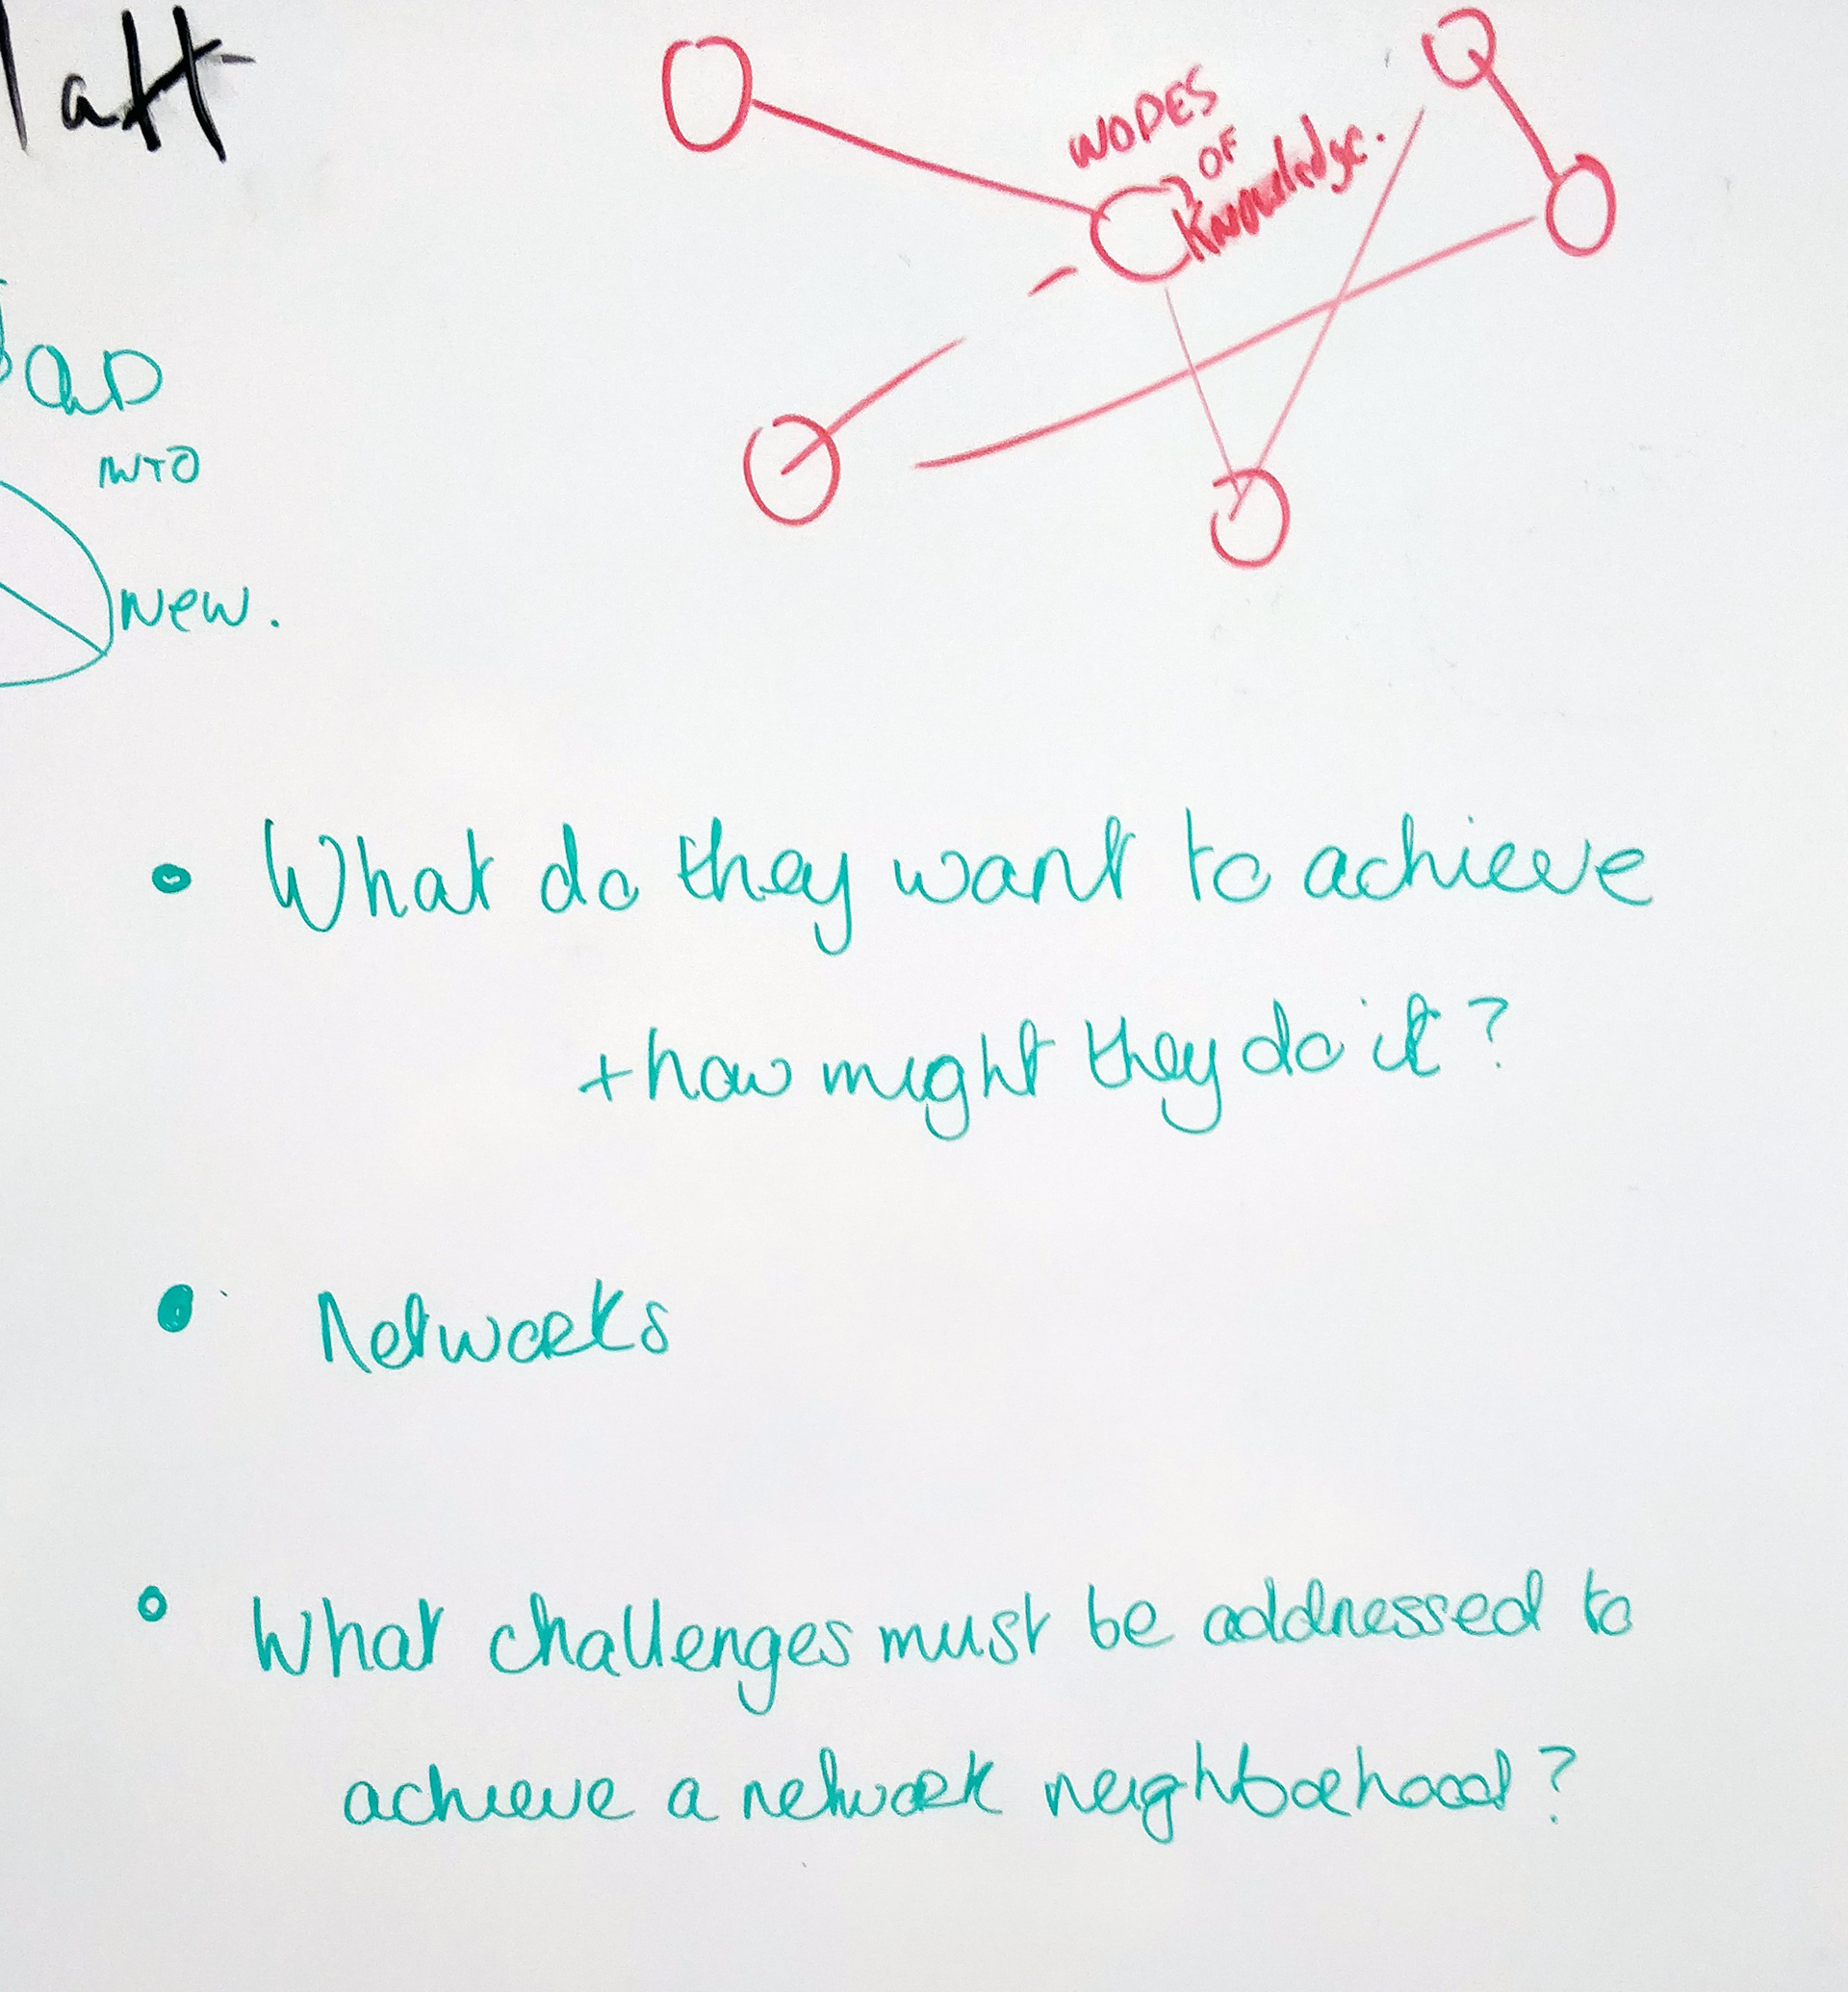 NODES
OF
Knowledge.
INTO
New.
• What do they want to achieve
+ how might they do it?
• Networks
• What challenges must be addressed to
achieve a network neighborhood?